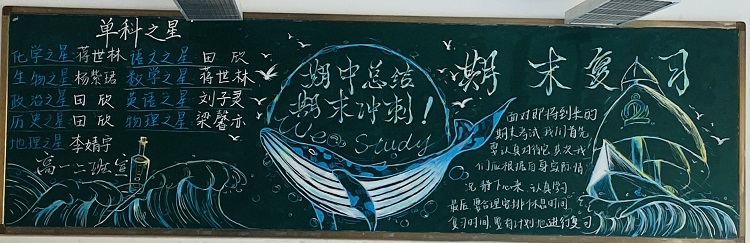 单科之星
化学之星 蒋世林 语文之星 田欣
生物之星 杨紫珺 数学之星 蒋世林
政治之星 田欣 英语之星 刘子灵
历史之星 田欣 物理之星 梁馨亦
地理之星 李婧宁
高一二班宣
期中总结
期末冲刺!
Study
期末复习
面对即将到来的
期末考试我们首先
要认真对待它其次我
们应根据自身实际情
况静下心来认真学习
最后要合理安排休息时间
复习时间要有计划地进行复习